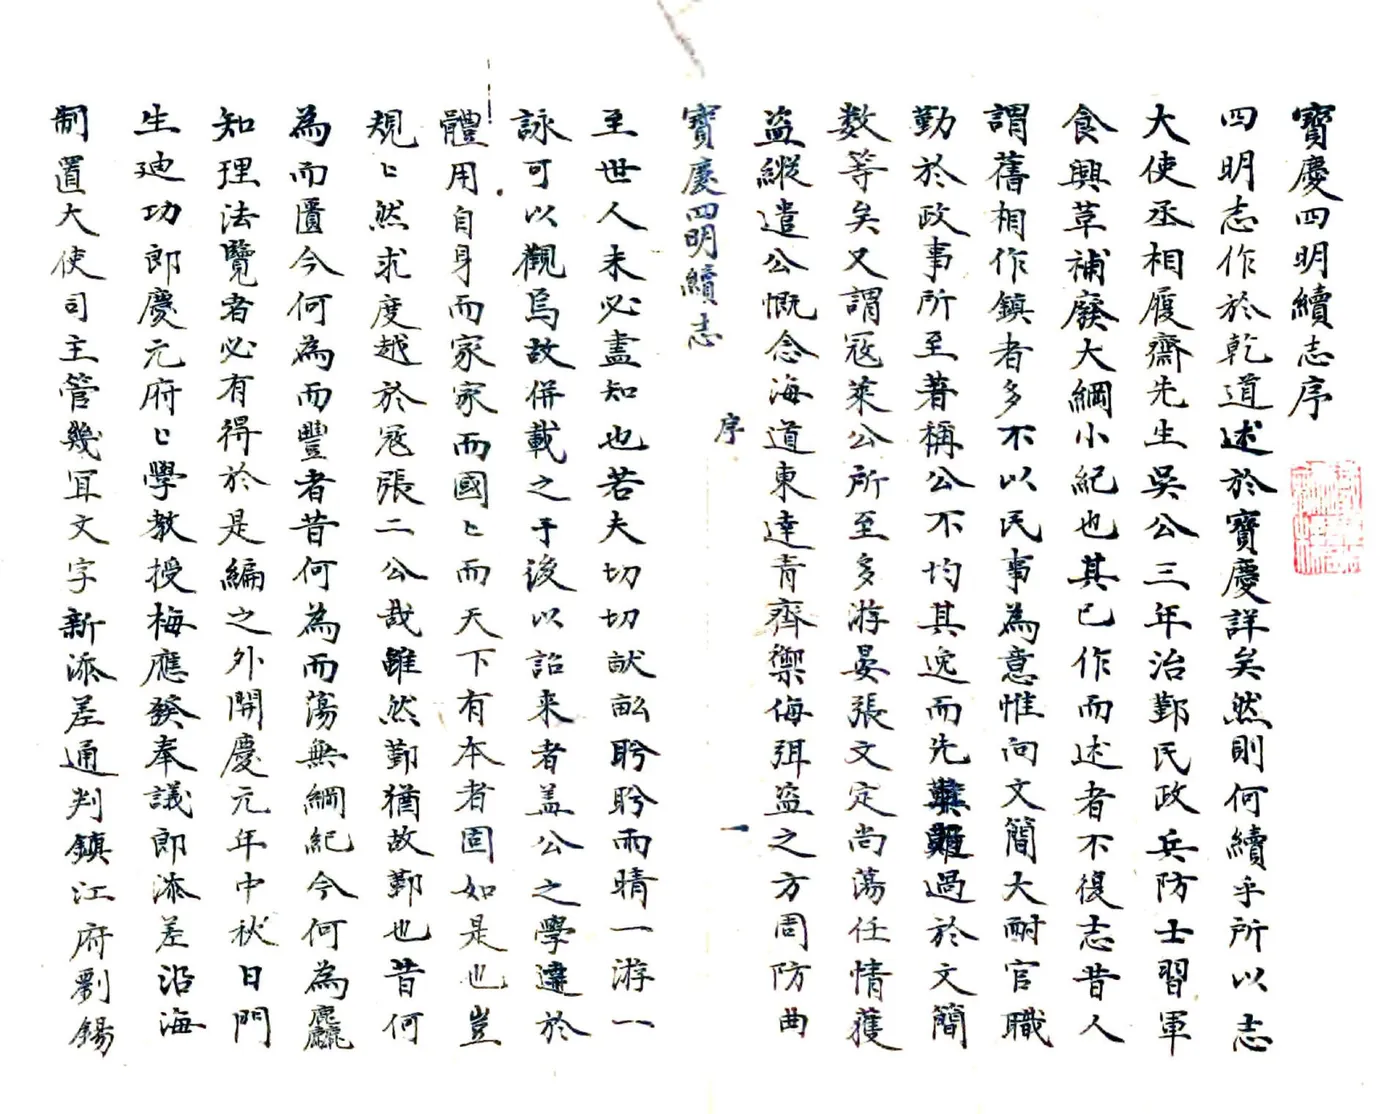 寶慶四明續志序
四明志作於乾道述於寶慶詳矣然則何續乎所以志
大使丞相履齋先生吳公三年治鄞民政兵防士習軍
食興革補廢大綱小紀也其已作而述者不復志昔人
謂舊相作鎮者多不以民事為意惟向文簡大耐官職
勤於政事所至著稱公不均其逸而先其難過於文簡
数等矣又謂寇萊公所至多游晏張文定尚蕩任情獲
盗縱遣公慨念海道東達青齊禦侮弭盗之方周防曲
寶慶四明續志 序 一
至世人未必盡知也若夫切切畎畝盻盻雨晴一游一
詠可以觀焉故併載之于後以詔来者盖公之學達於
體用自身而家家而國〻而天下有本者固如是也豈
規〻然求度越於寇張二公哉雖然鄞猶故鄞也昔何
為而匱今何為而豐者昔何為而蕩無綱紀今何為麤
知理法覽者必有得於是編之外開慶元年中秋日門
生廸功郎慶元府〻學教授梅應發奉議郎添差沿海
制置大使司主管幾冝文字新添差通判鎮江府劉錫